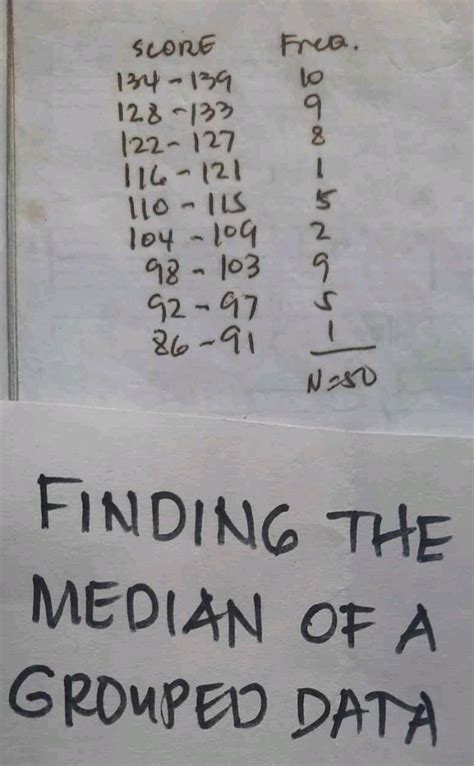 SCORE Freq.
134-139 10
128-133 9
122-127 8
116-121 1
110-115 5
104-109 2
98-103 9
92-97 5
86-91 1
N=50
FINDING THE
MEDIAN OF A
GROUPED DATA